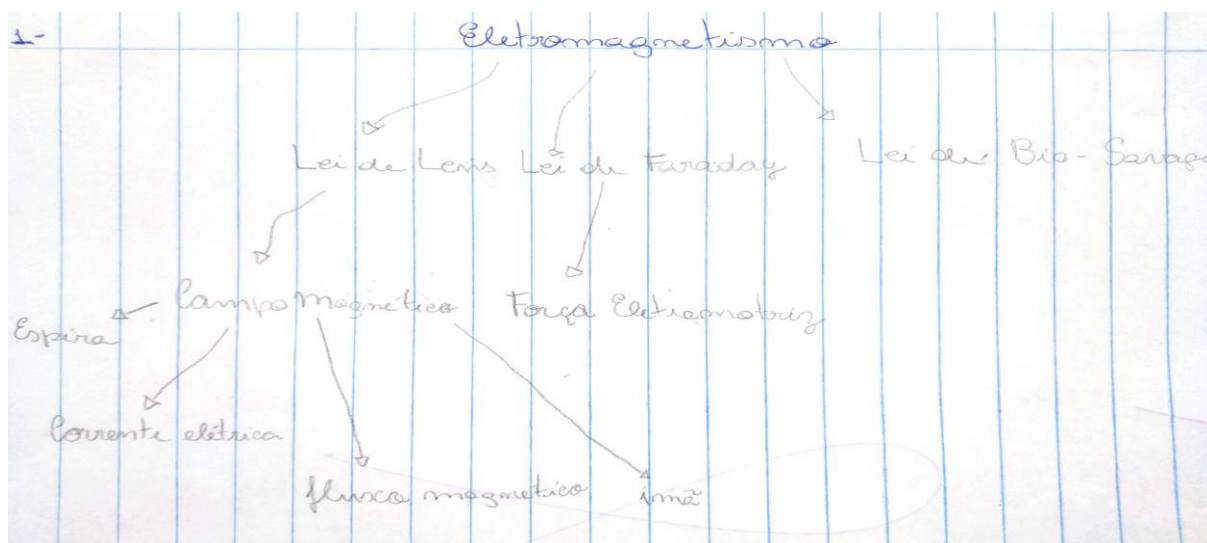 1- Eletromagnetismo
Lei de Lenis Lei de Faraday Lei de Bio-Savago
Campo Magnético Força Eletromotriz
Espira
Corrente elétrica
fluxo magnetico imã